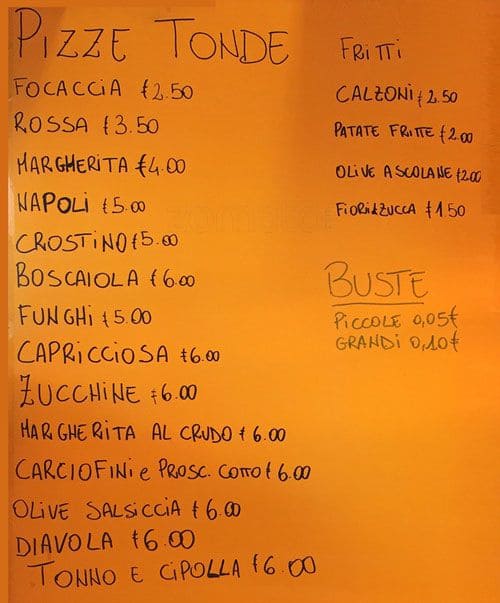 PIZZE TONDE
FOCACCIA €2.50
ROSSA €3.50
MARGHERITA €4.00
NAPOLI €5.00
CROSTINO €5.00
BOSCAIOLA €6.00
FUNGHI €5.00
CAPRICCIOSA €6.00
ZUCCHINE €6.00
MARGHERITA AL CRUDO €6.00
CARCIOFINI e PROSC. COTTO €6.00
OLIVE SALSICCIA €6.00
DIAVOLA €6.00
TONNO E CIPOLLA €6.00
FRITTI
CALZONI €2.50
PATATE FRITTE €2.00
OLIVE ASCOLANE €2.00
FIORI ZUCCA €1.50
BUSTE
PICCOLE 0,05€
GRANDI 0,10€